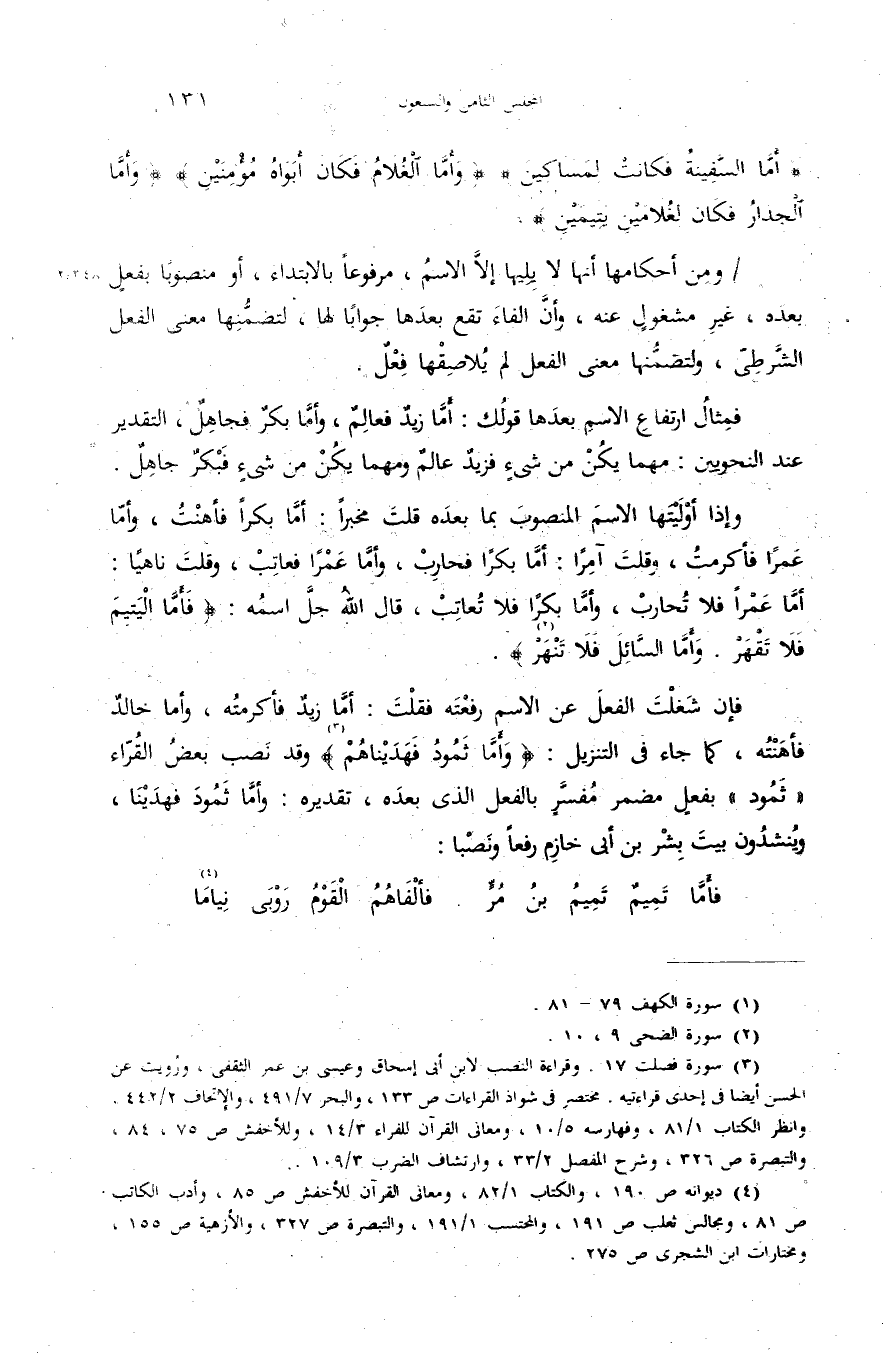 المجلس الثامن والسبعون ١٣١
﴿ أَمَّا السَّفِينةُ فكانتْ لمَساكينَ ﴾ ﴿ وَأَمَّا ٱلْغُلامُ فَكَان أَبَوَاهُ مُؤْمِنَيْنِ ﴾ ﴿ وَأَمَّا
ٱلْجِدَارُ فكَان لغُلامَيْنِ يتِيمَيْنِ ﴾ .
/ ومِن أحكامها أنها لا يلِيها إلاَّ الاسمُ ، مرفوعاً بالابتداء ، أو منصوبًا بفعلٍ ٢/٣٤٨
بعدَه ، غيرِ مشغولٍ عنه ، وأنَّ الفاءَ تقع بعدَها جوابًا لها ، لتضمُّنِها معنى الفعل
الشَّرطِىّ ، ولتضمُّنها معنى الفعل لم يُلاصِقْها فِعْلٌ .
فمِثالُ ارتفاعِ الاسمِ بعدَها قولُك : أَمَّا زيدٌ فعالِمٌ ، وأمَّا بكرٌ فجاهِلٌ ، التقدير
عند النحويين : مهما يكُنْ من شىءٍ فزيدٌ عالمٌ ومهما يكُنْ من شىءٍ فَبْكرٌ جاهِلٌ .
وإذا أوْلَيْتَها الاسمَ المنصوبَ بما بعدَه قلتَ مخبراً : أمَّا بكراً فأهنْتُ ، وأمّا
عَمرًا فأكرمتُ ، وقلتَ آمِرًا : أمَّا بكرًا فحارِبْ ، وأمَّا عَمْرًا فعاتِبْ ، وقلتَ ناهيًا :
أمَّا عَمْراً فلا تُحاربْ ، وأمَّا بكرًا فلا تُعاتِبْ ، قال اللهُ جلَّ اسمُه : ﴿ فَأَمَّا الْيَتِيمَ
فَلَا تَقْهَرْ . وَأَمَّا السَّائِلَ فَلَا تَنْهَرْ ﴾(٢) .
فإن شَغلْتَ الفعلَ عن الاسمِ رفعْتَه فقلْتَ : أمَّا زيدٌ فأكرمتُه ، وأما خالدٌ
فأهَنْتُه ، كما جاء فى التنزيل : ﴿ وَأَمَّا ثَمُودُ فَهَدَيْناهُمْ ﴾(٣) وقد نَصب بعضُ القُرّاء
« ثَمُود » بفعلٍ مضمر مُفسَّرٍ بالفعل الذى بعدَه ، تقديره : وأمَّا ثَمُودَ فهدَيْنَا ،
ويُنشدُون بيتَ بِشْر بن أبى خازِم رفعاً ونَصْبا :
فأَمَّا تَمِيمٌ تَمِيمُ بنُ مُرٍّ . فألْفَاهُمُ الْقَوْمُ رَوْبَى نِيامَا(٤)
(١) سورة الكهف ٧٩ – ٨١ .
(٢) سورة الضحى ٩ ، ١٠ .
(٣) سورة فصلت ١٧ . وقراءة النصب لابن أبى إسحاق وعيسى بن عمر الثقفى ، ورُويت عن
الحسن أيضا فى إحدى قراءتيه . مختصر فى شواذ القراءات ص ١٣٣ ، والبحر ٤٩١/٧ ، والإتحاف ٤٤٢/٢ .
وانظر الكتاب ٨١/١ ، وفهارسه ١٠/٥ ، ومعانى القرآن للفراء ١٤/٣ ، وللأخفش ص ٧٥ ، ٨٤ ،
والتبصرة ص ٣٢٦ ، وشرح المفصل ٣٣/٢ ، وارتشاف الضرب ١٠٩/٣ .
(٤) ديوانه ص ١٩٠ ، والكتاب ٨٢/١ ، ومعانى القرآن للأخفش ص ٨٥ ، وأدب الكاتب
ص ٨١ ، ومجالس ثعلب ص ١٩١ ، والمحتسب ١٩١/١ ، والتبصرة ص ٣٢٧ ، والأزهية ص ١٥٥ ،
ومختارات ابن الشجرى ص ٢٧٥ .